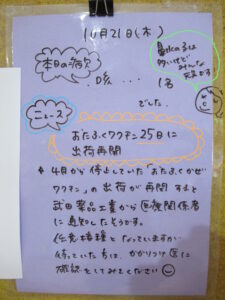 10月21日(木)
鼻水の子は
多いけど
みんな
元気です
本日の病欠
咳… 1名
でした。
ニュース
おたふくワクチン25日に
出荷再開
4月から停止していた「おたふくかぜ
ワクチン」の出荷が再開すると
武田薬品工業から医機関係者
に通知したそうです。
任意接種となっていますが
待っていた方は、かかりつけ医に
確認をしてみてください